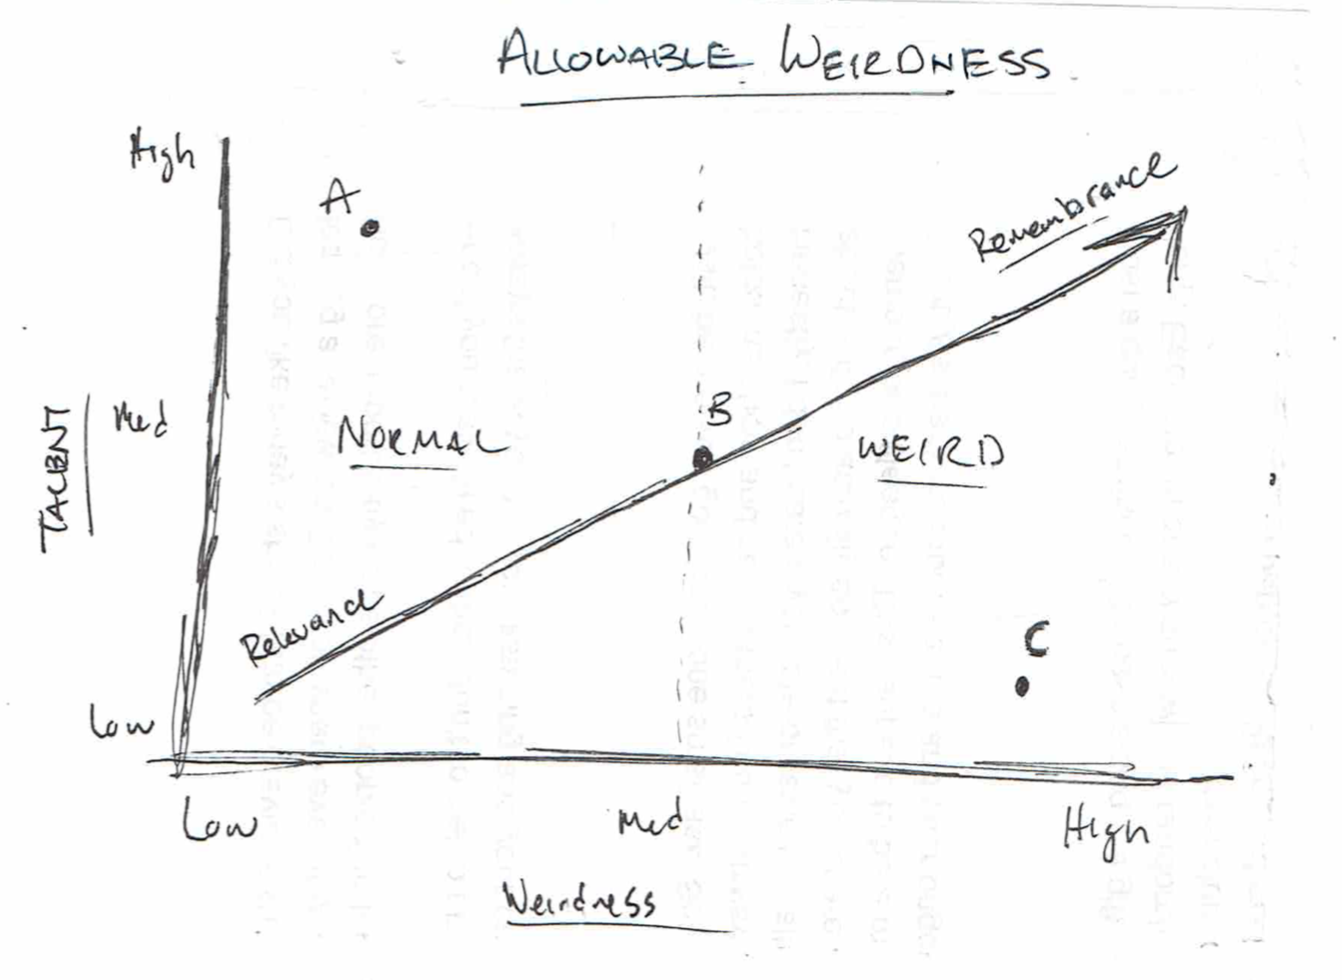 ALLOWABLE WEIRDNESS
High
A
Remembrance
B
TALENT
Med
NORMAL
WEIRD
Relevance
C
Low
Low
Med
High
Weirdness